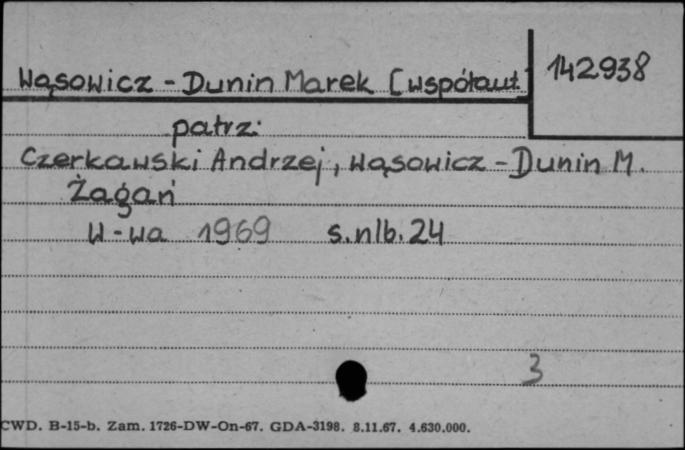 Wąsowicz - Dunin Marek [współaut.
142938
patrz:
Czerkawski Andrzej, Wąsowicz - Dunin M.
Żagań
W-wa 1969 s.nlb. 24
3
CWD. B-15-b. Zam. 1726-DW-On-67. GDA-3198. 8.11.67. 4.630.000.